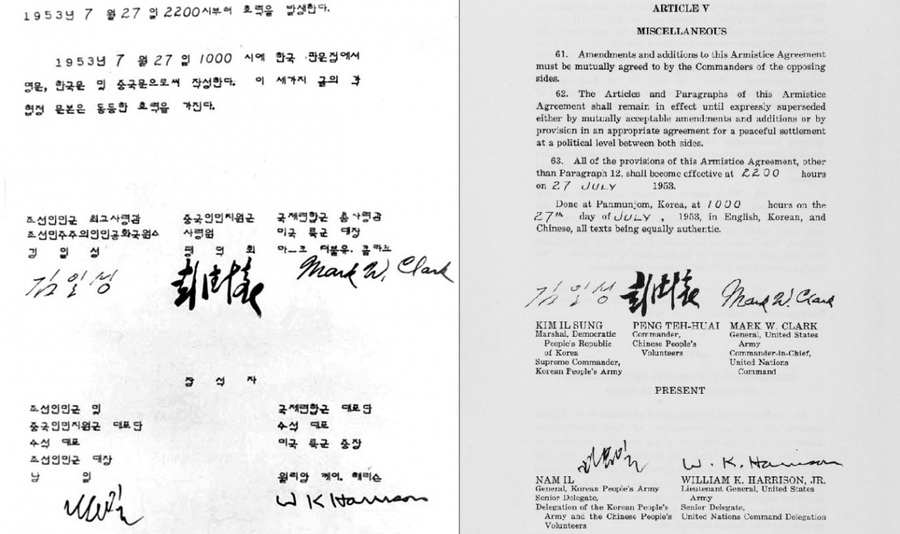 1953년 7 월 27 일 2200 시부터 효력을 발생한다.
1953년 7 월 27 일 1000 시에 한국 판문점에서
영문, 한국문 및 중국문으로써 작성한다. 이 세가지 글의 각
협정 문본은 동등한 효력을 가진다.
조선인민군 최고사령관
조선민주주의인민공화국원수
김 일 성
김일성
중국인민지원군
사령원
팽 덕 회
彭德懷
국제련합군 총사령관
미국 륙군 대장
마크 더블유. 클라크
Mark W. Clark
참 석 자
조선인민군 및
중국인민지원군 대표단
수석 대표
조선인민군 대장
남 일
남일
국제련합군 대표단
수석 대표
미국 륙군 중장
윌리암 케이. 해리슨
W K Harrison
ARTICLE V
MISCELLANEOUS
61. Amendments and additions to this Armistice Agreement
must be mutually agreed to by the Commanders of the opposing
sides.
62. The Articles and Paragraphs of this Armistice
Agreement shall remain in effect until expressly superseded
either by mutually acceptable amendments and additions or by
provision in an appropriate agreement for a peaceful settlement
at a political level between both sides.
63. All of the provisions of this Armistice Agreement, other
than Paragraph 12, shall become effective at 2200 hours
on 27 JULY 1953.
Done at Panmunjom, Korea, at 1000 hours on the
27th day of JULY, 1953, in English, Korean, and
Chinese, all texts being equally authentic.
김일성
KIM IL SUNG
Marshal, Democratic
People's Republic
of Korea
Supreme Commander,
Korean People's Army
彭德懷
PENG TEH-HUAI
Commander,
Chinese People's
Volunteers
Mark W. Clark
MARK W. CLARK
General, United States
Army
Commander-in-Chief,
United Nations
Command
PRESENT
남일
NAM IL
General, Korean People's Army
Senior Delegate,
Delegation of the Korean People's
Army and the Chinese People's
Volunteers
W. K. Harrison
WILLIAM K. HARRISON, JR.
Lieutenant General, United States
Army
Senior Delegate,
United Nations Command Delegation